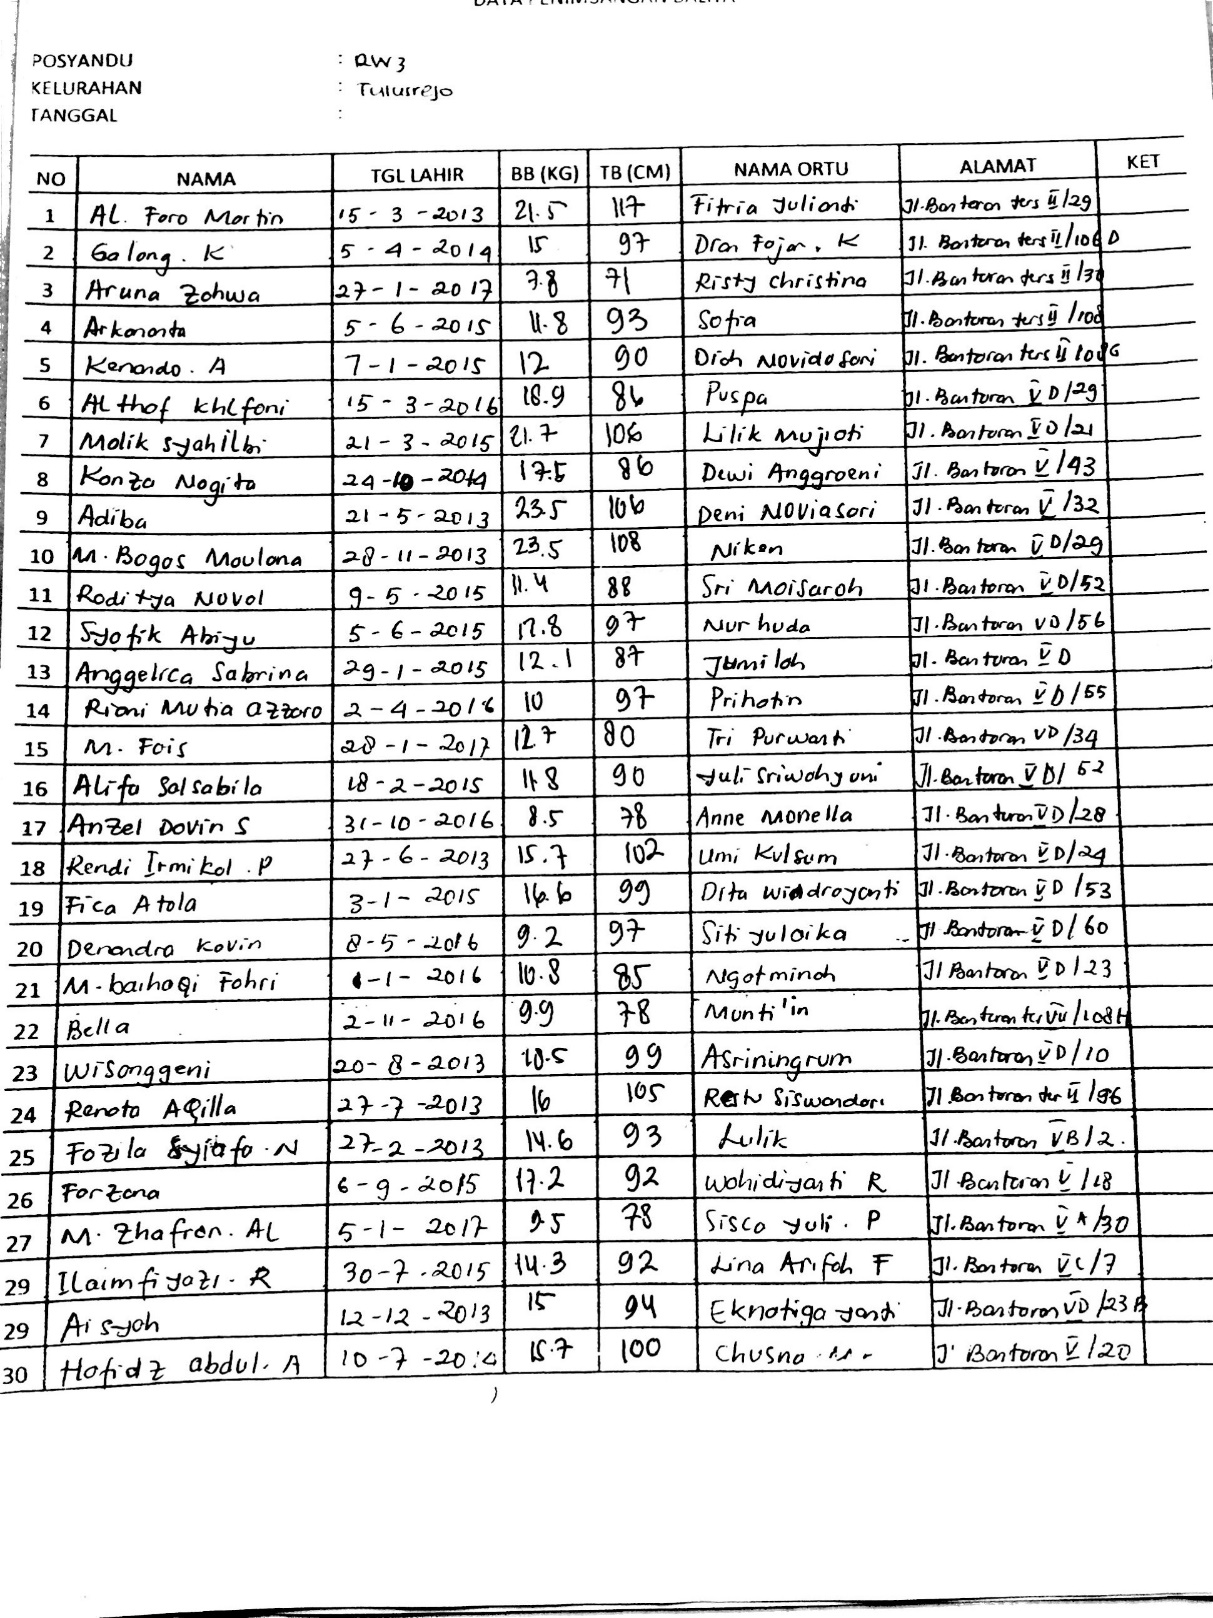 DATA PENIMBANGAN BALITA
POSYANDU : RW3
KELURAHAN : Tulusrejo
TANGGAL :
NO NAMA TGL LAHIR BB (KG) TB (CM) NAMA ORTU ALAMAT KET
1 AL. Faro Martin 15-3-2013 21.5 117 Fitria Yulianti Jl. Bantaran ters II/29
2 Galang. K 5-4-2014 15 97 Dian Fajar. K Jl. Bantaran ters II/106 D
3 Aruna Zahwa 27-1-2017 7.8 71 Risty Christina Jl. Bantaran ters II/30
4 Arkananta 5-6-2015 11.8 93 Sofia Jl. Bantaran ters II/108
5 Kenando. A 7-1-2015 12 90 Diah Novidasari Jl. Bantaran ters II
6 Al thof khlfani 15-3-2016 18.9 86 Puspa Jl. Bantaran V D/29
7 Malik Syahilbi 21-3-2015 21.7 106 Lilik Mujiati Jl. Bantaran V D/21
8 Kanza Nagita 24-10-2014 17.5 86 Dewi Anggraeni Jl. Bantaran V/43
9 Adiba 21-5-2013 23.5 106 Deni Noviasari Jl. Bantaran V/32
10 M. Bagas Maulana 28-11-2013 23.5 108 Niken Jl. Bantaran V D/29
11 Raditya Nuval 9-5-2015 11.4 88 Sri Maisaroh Jl. Bantaran V D/52
12 Syafik Abiyu 5-6-2015 17.8 97 Nur huda Jl. Bantaran VD/56
13 Anggelica Sabrina 29-1-2015 12.1 87 Jumilah Jl. Bantaran V D
14 Riani Mutia azzara 2-4-2016 10 97 Prihatin Jl. Bantaran V D/55
15 M. Fais 28-1-2017 12.7 80 Tri Purwanti Jl. Bantaran VD/34
16 Alifa Salsabila 18-2-2015 11.8 90 Yuli Sriwahyuni Jl. Bantaran V D/ 52
17 Anzel Davin S 31-10-2016 8.5 78 Anne Monella Jl. Bantaran V D/28
18 Rendi Irmikal. P 27-6-2013 15.7 102 Umi Kulsum Jl. Bantaran V D/24
19 Fica Atala 3-1-2015 16.6 99 Dita windrayanti Jl. Bantaran V D/53
20 Denandra Kavin 8-5-2016 9.2 97 Siti yulaika Jl Bantaran V D/60
21 M. baihaqi Fahri 1-2016 10.8 85 Ngatminah Jl Bantaran V D/23
22 Bella 2-11-2016 9.9 78 Munti'in Jl. Bantaran /108H
23 Wisanggeni 20-8-2013 10.5 99 Asriningrum Jl. Bantaran V D/10
24 Renata AQilla 27-7-2013 16 105 Restu Siswandari Jl Bantaran ter II/96
25 Fazila Syiafa. N 27-2-2013 14.6 93 Lulik Jl. Bantaran VB/2.
26 Farzana 6-9-2015 17.2 92 Wahidiyanti R Jl Bantaran V/18
27 M. Zhafran. AL 5-1-2017 9.5 78 Sisca Yuli. P Jl. Bantaran V A/30
29 Ilaimfiyazi. R 30-7-2015 14.3 92 Lina Arifah F Jl. Bantaran V C/7
29 Aisyah 12-12-2013 15 94 Eknatiga yanti Jl. Bantaran VD/23B
30 Hafidz abdul. A 10-7-2014 15.7 100 Chusna Bantaran V/20